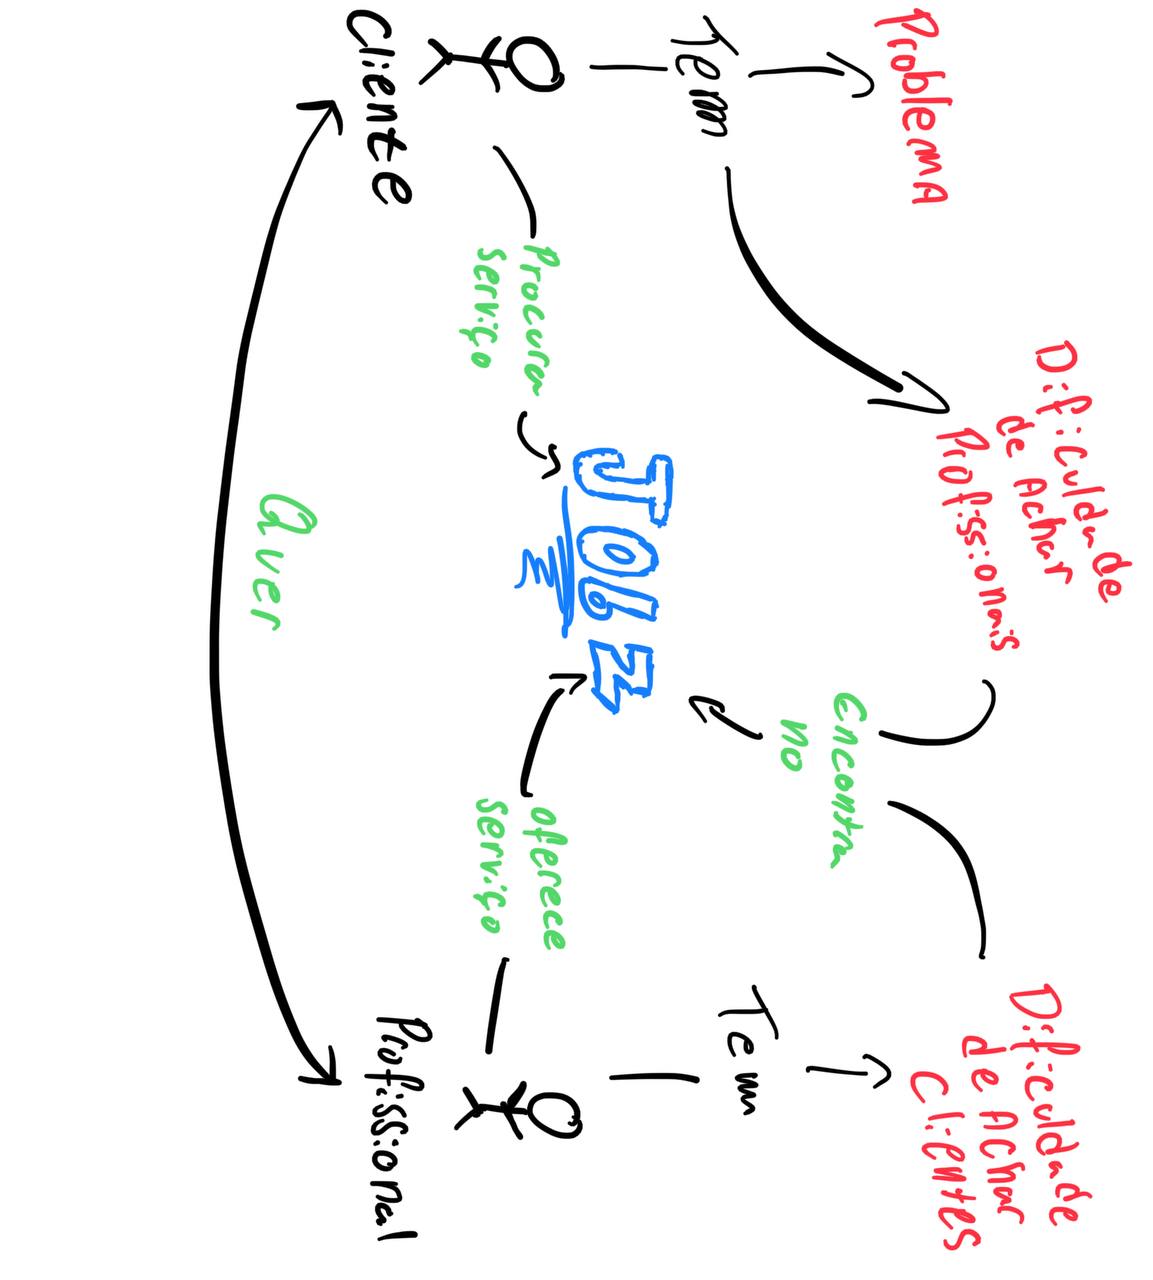 Dificuldade
de Achar
Profissionais
Dificuldade
de Achar
Clientes
Problema
Encontra
no
Tem
Tem
Jobz
Procura
serviço
oferece
serviço
Cliente
Profissional
Quer